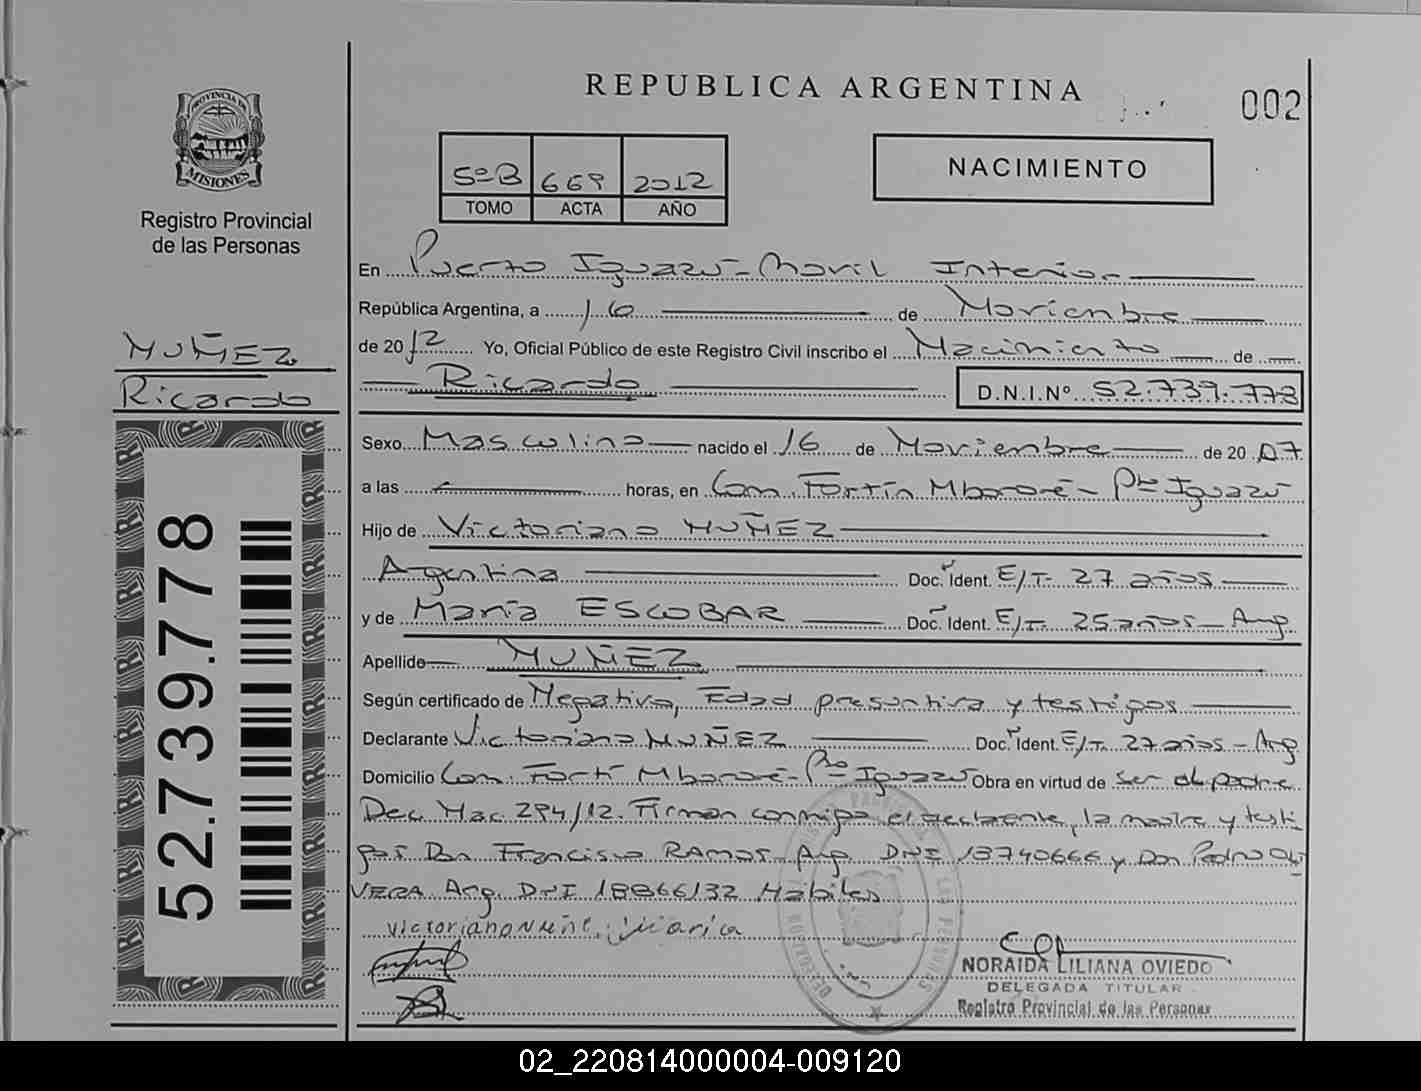 REPUBLICA ARGENTINA
002
PROVINCIA DE
MISIONES
Registro Provincial
de las Personas
5ºB 669 2012
TOMO ACTA AÑO
NACIMIENTO
En Puerto Iguazú - Movil Interior
República Argentina, a 16 de Noviembre
de 2012 Yo, Oficial Público de este Registro Civil inscribo el Nacimiento de
Ricardo D.N.I.Nº 52.739.778
MUÑEZ
Ricardo
Sexo Masculino nacido el 16 de Noviembre de 2007
a las horas, en Com. Fortín Mbororé - Pto Iguazú
Hijo de Victoriano NUÑEZ
Argentina Doc. Ident. E/T. 27 años
y de María ESCOBAR Doc. Ident. E/T. 25 años - Arg.
Apellido NUÑEZ
Según certificado de Negativa, Edad presuntiva y testigos
Declarante Victoriano NUÑEZ Doc. Ident. E/T. 27 años - Arg.
Domicilio Com. Fortí Mbororé - Pto Iguazú Obra en virtud de ser el padre
Dec. Nac. 294/12. Firman conmigo el declarante, la madre y testi
gos Don Francisco RAMOS - Arg. DNI 13740666 y Don Pedro OLI
VERA Arg. DNI 18866132 Habiles
victoriano Nuñe. Maria
52.739.778
NORAIDA LILIANA OVIEDO
DELEGADA TITULAR
Registro Provincial de las Personas
02_220814000004-009120